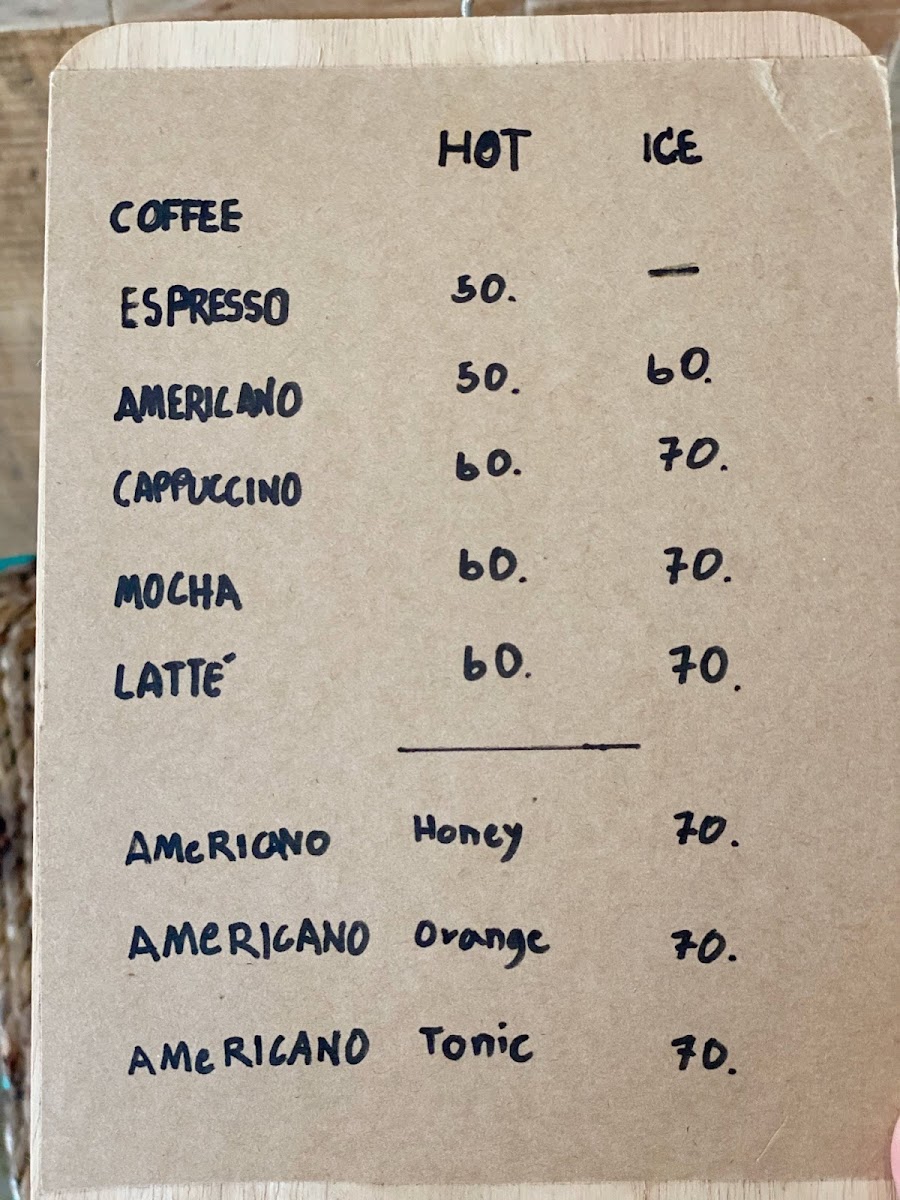 HOT ICE
COFFEE
ESPRESSO 50. —
AMERICANO 50. 60.
CAPPUCCINO 60. 70.
MOCHA 60. 70.
LATTÉ 60. 70.
AMeRICANO Honey 70.
AMeRICANO Orange 70.
AMeRICANO Tonic 70.